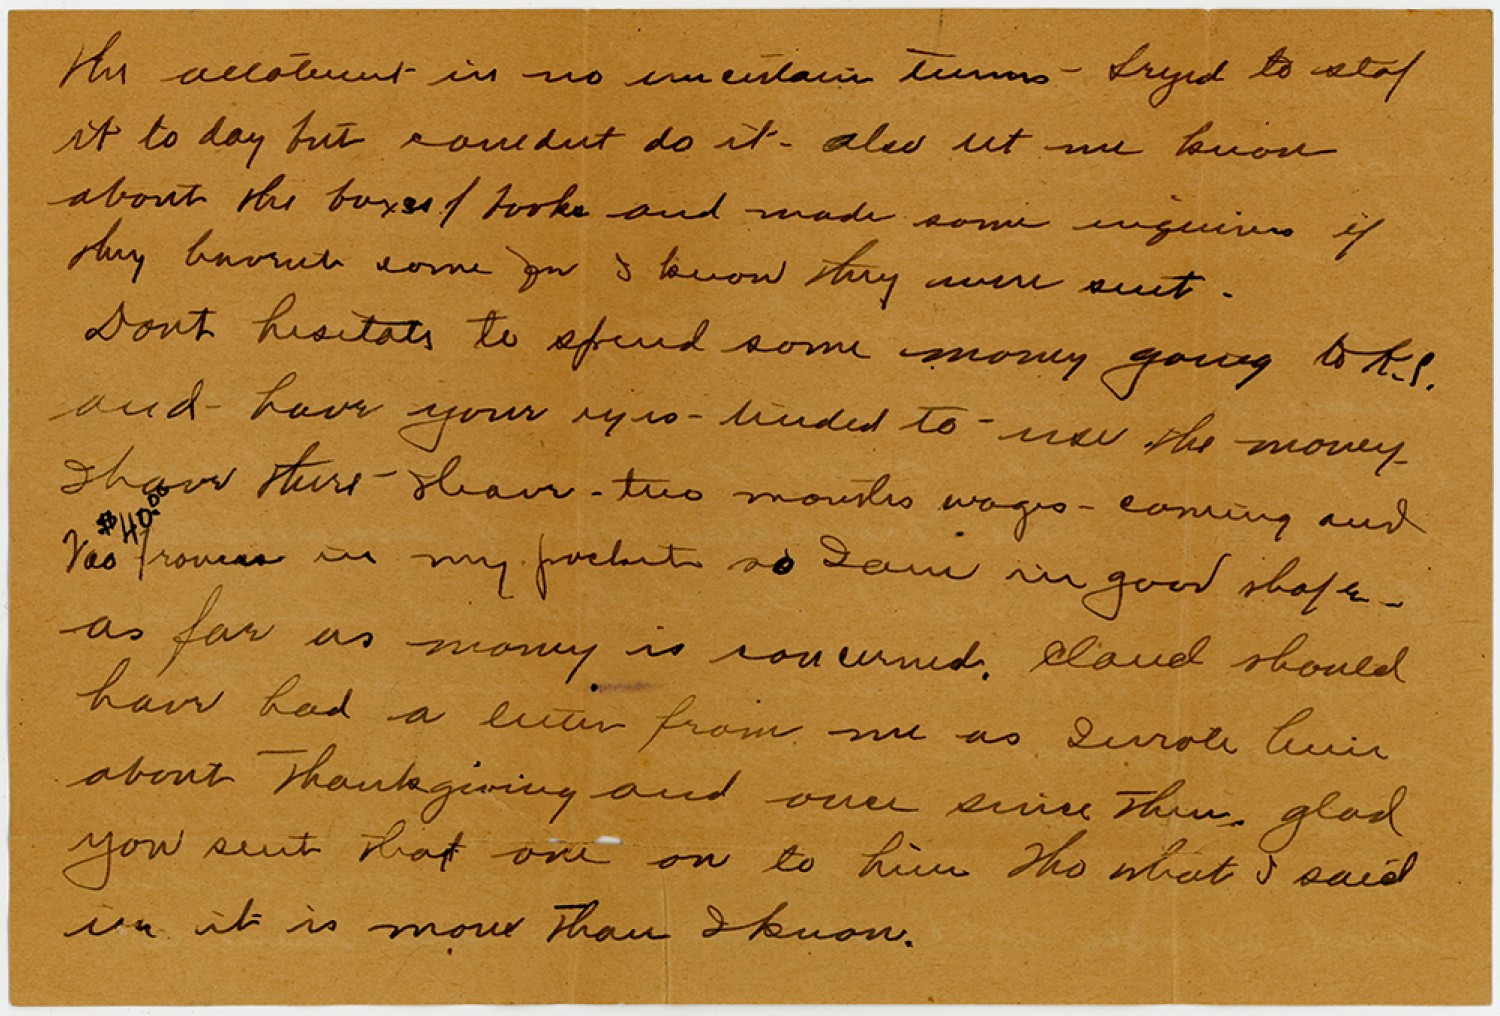 the allotment in no uncertain terms - I tryed to stop
it to day but couldnt do it - also let me know
about the boxes of books and made some inquiries if
they havent come for I know they were sent.
Dont hesitate to spend some money going to K.C.
and have your eyes tended to - use the money
I have there - I have - two months wages - coming and
$40.00
200 francs in my pocket so I am in good shape -
as far as money is concerned. Claud should
have had a letter from me as I wrote him
about Thanksgiving and once since then. glad
you sent that one on to him tho what I said
in it is more than I know.